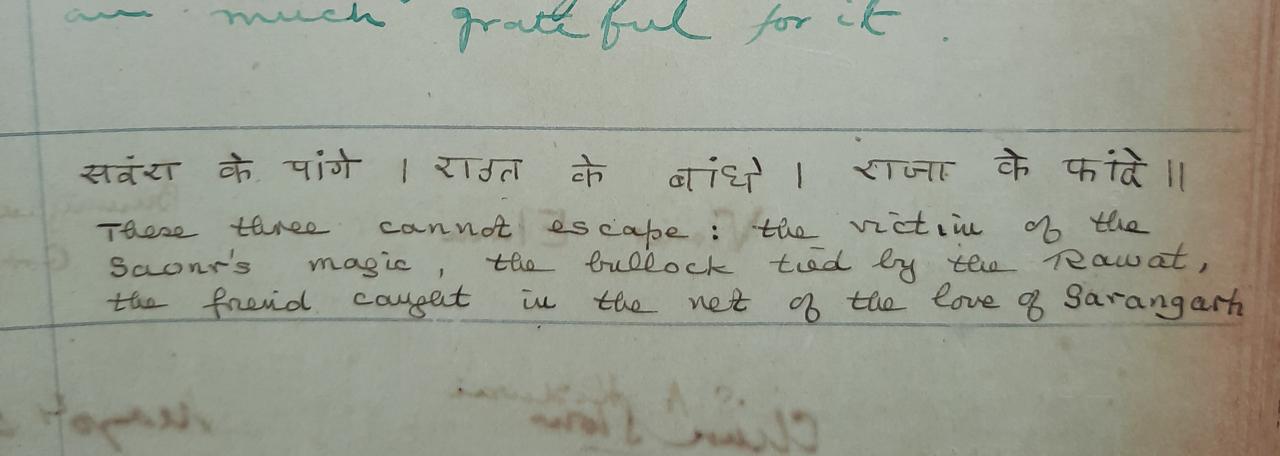 am much grateful for it.
सवंरा के पांगे । राउत के बांधे । राजा के फांदे ॥
These three cannot escape : the victim of the
Saonr's magic, the bullock tied by the Rawat,
the freind caught in the net of the love of Sarangarh